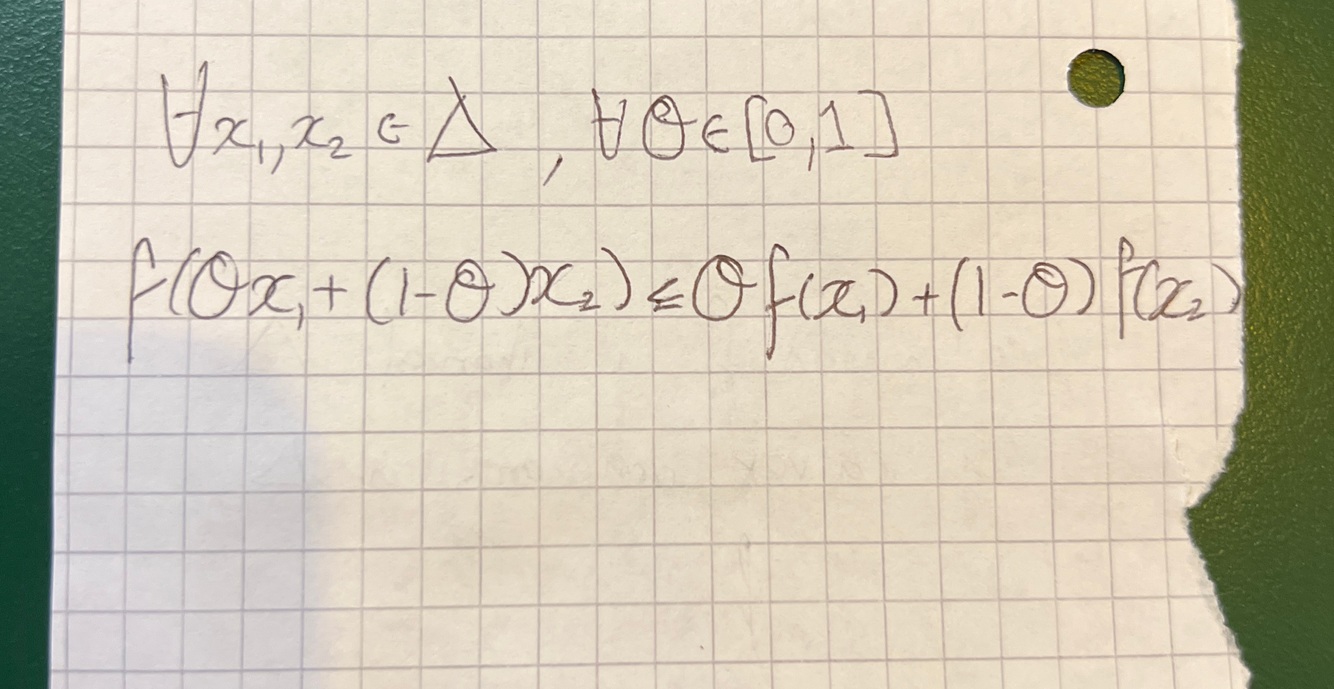 ∀x₁,x₂ ∈ Δ , ∀θ∈[0,1]
f(θx₁+(1-θ)x₂) ≤ θf(x₁)+(1-θ)f(x₂)